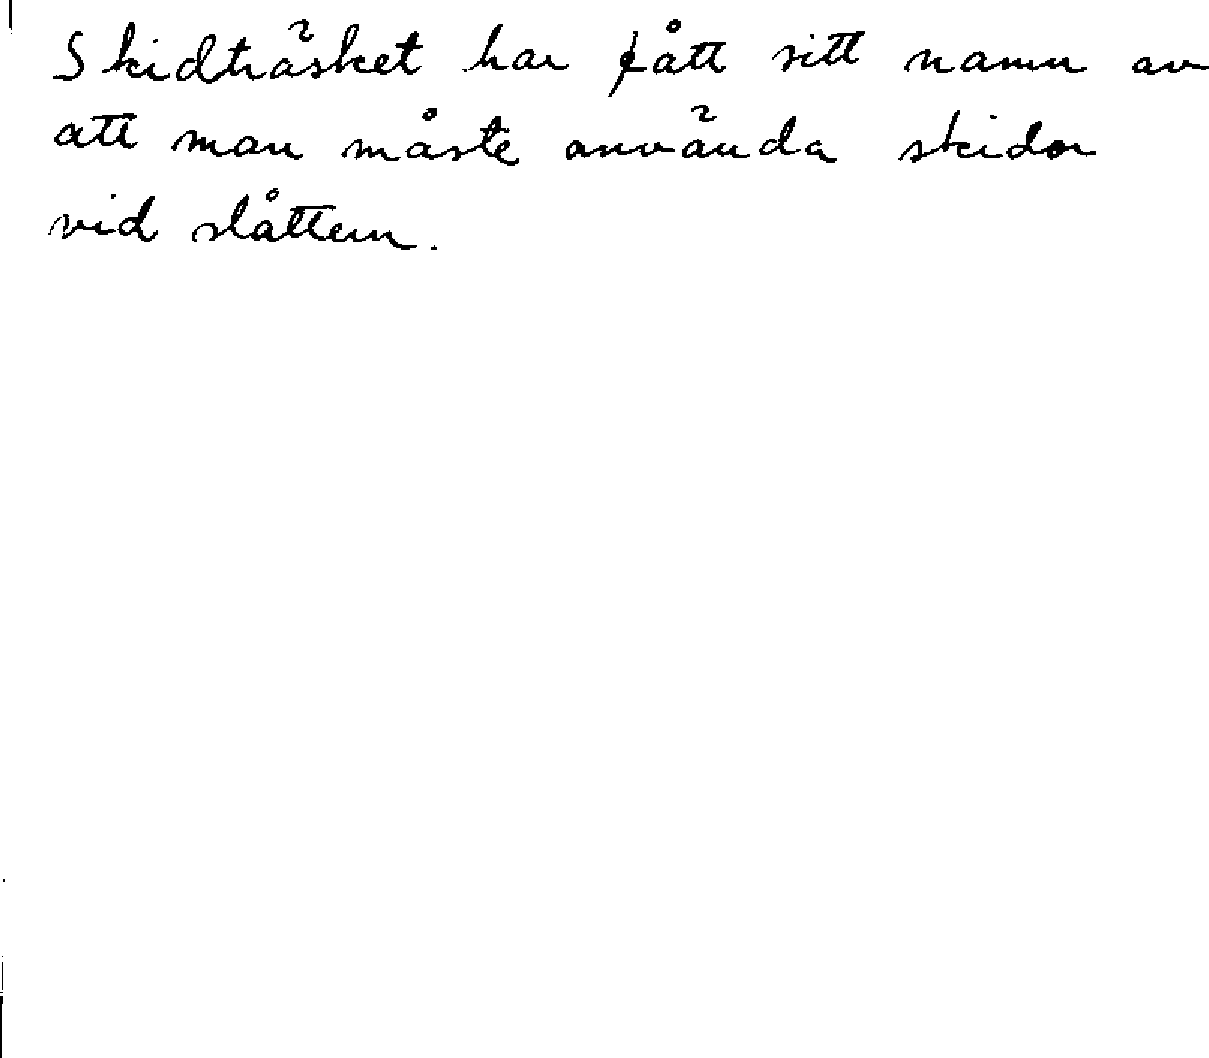 Skidträsket har fått sitt namn av
att man måste använda skidor
vid slåttern.